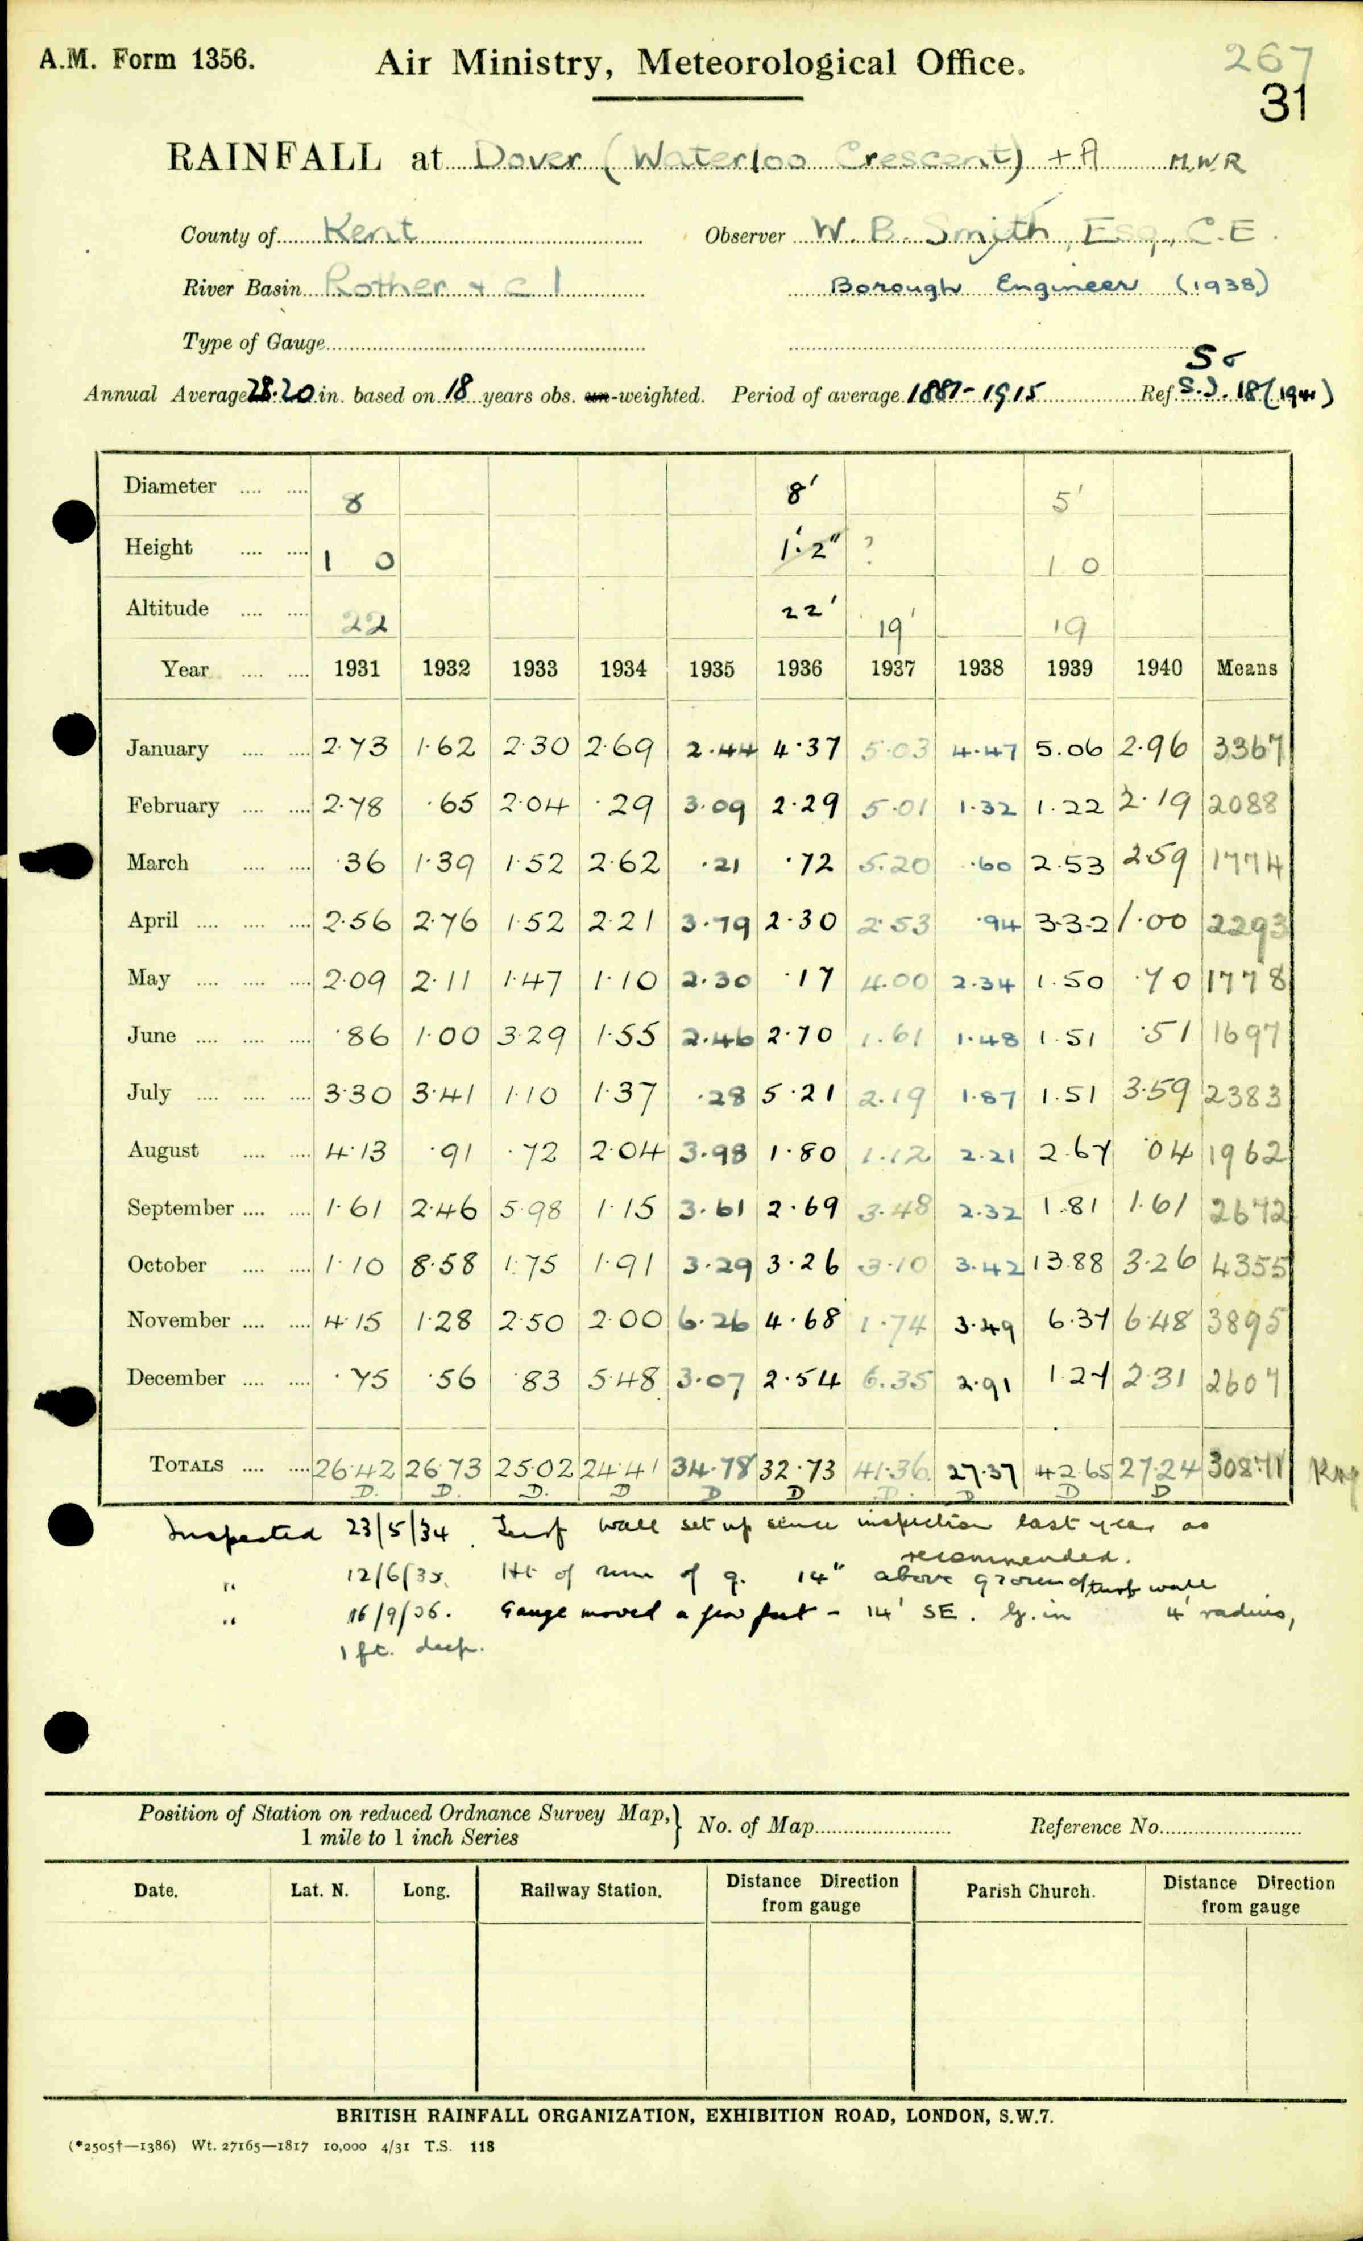 A.M. Form 1356. Air Ministry, Meteorological Office. 267
31
RAINFALL at Dover (Waterloo Crescent) + A M.W.R
County of Kent Observer W. B. Smith, Esq., C.E.
River Basin Rother + c 1 Borough Engineer (1938)
Type of Gauge
S σ
Annual Average 28.20 in. based on 18 years obs. un-weighted. Period of average 1881-1915 Ref. S.J. 18 (1941)
Diameter 8 8' 5'
Height 1 0 1'.2" ? 1 0
Altitude 22 22' 19' 19
Year 1931 1932 1933 1934 1935 1936 1937 1938 1939 1940 Means
January 2.73 1.62 2.30 2.69 2.44 4.37 5.03 4.47 5.06 2.96 3367
February 2.78 .65 2.04 .29 3.09 2.29 5.01 1.32 1.22 2.19 2088
March .36 1.39 1.52 2.62 .21 .72 5.20 .60 2.53 2.59 1774
April 2.56 2.76 1.52 2.21 3.79 2.30 2.53 .94 3.32 1.00 2293
May 2.09 2.11 1.47 1.10 2.30 .17 4.00 2.34 1.50 .70 1778
June .86 1.00 3.29 1.55 2.46 2.70 1.61 1.48 1.51 .51 1697
July 3.30 3.41 1.10 1.37 .28 5.21 2.19 1.87 1.51 3.59 2383
August 4.13 .91 .72 2.04 3.98 1.80 1.12 2.21 2.67 .04 1962
September 1.61 2.46 5.98 1.15 3.61 2.69 3.48 2.32 1.81 1.61 2672
October 1.10 8.58 1.75 1.91 3.29 3.26 3.10 3.42 13.88 3.26 4355
November 4.15 1.28 2.50 2.00 6.26 4.68 1.74 3.49 6.37 6.48 3895
December .75 .56 .83 5.48 3.07 2.54 6.35 2.91 1.27 2.31 2607
TOTALS 26.42 26.73 25.02 24.41 34.78 32.73 41.36 27.37 42.65 27.24 30871
D. D. D. D D D D. D D D
Inspected 23/5/34. Turf wall set up since inspection last year as
recommended.
" 12/6/35. Ht of rim of g. 14" above ground turf wall
" 16/9/36. Gauge moved a few feet - 14' SE. G. in 4' radius,
1 ft. deep.
Position of Station on reduced Ordnance Survey Map, } No. of Map Reference No.
1 mile to 1 inch Series
Date. Lat. N. Long. Railway Station. Distance Direction from gauge Parish Church. Distance Direction from gauge
BRITISH RAINFALL ORGANIZATION, EXHIBITION ROAD, LONDON, S.W.7.
(*2505†—1386) Wt. 27165—1817 10,000 4/31 T.S. 118